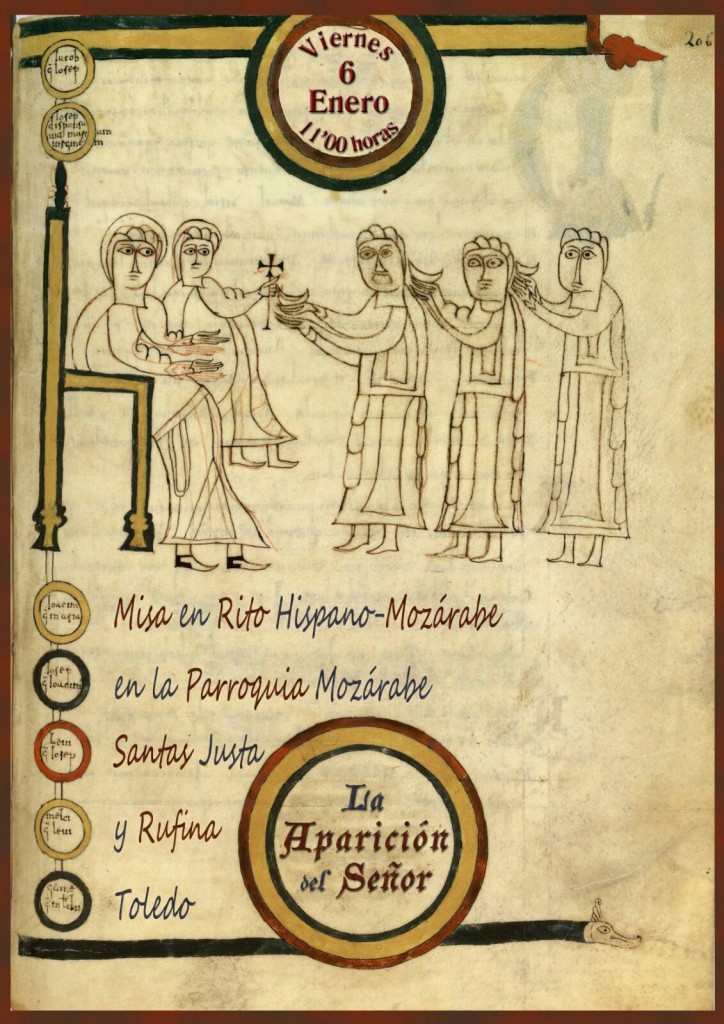 206
Viernes
6
Enero
11'00 horas
Misa en Rito Hispano-Mozárabe
en la Parroquia Mozárabe
Santas Justa
y Rufina
Toledo
La
Aparición
del Señor